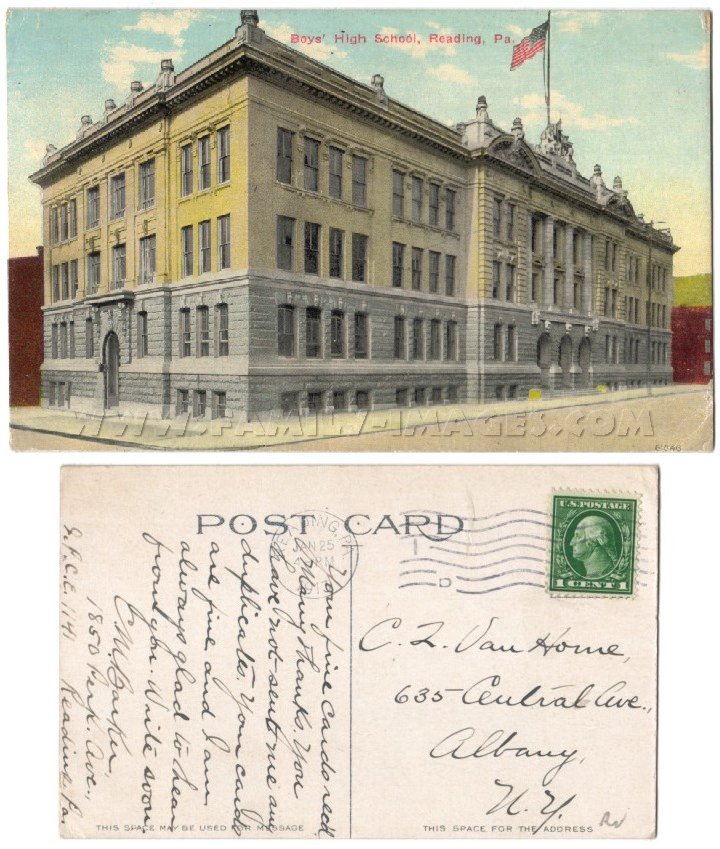 Boys' High School, Reading, Pa.
WWW.FAMILY-IMAGES.COM
POST CARD
READING, PA.
JAN 25
PM
1
D
U.S. POSTAGE
1 CENT 1
Your fine cards rec'd.
Many thanks. You
have not sent me any
duplicates. Your cards
are fine and I am
always glad to hear
from you. Write soon.
C. M. Barker,
1850 Ave.,
1141 Reading, Pa.
C. L. Van Horne,
635 Central Ave.,
Albany,
N.Y.
THIS SPACE MAY BE USED FOR MESSAGE
THIS SPACE FOR THE ADDRESS